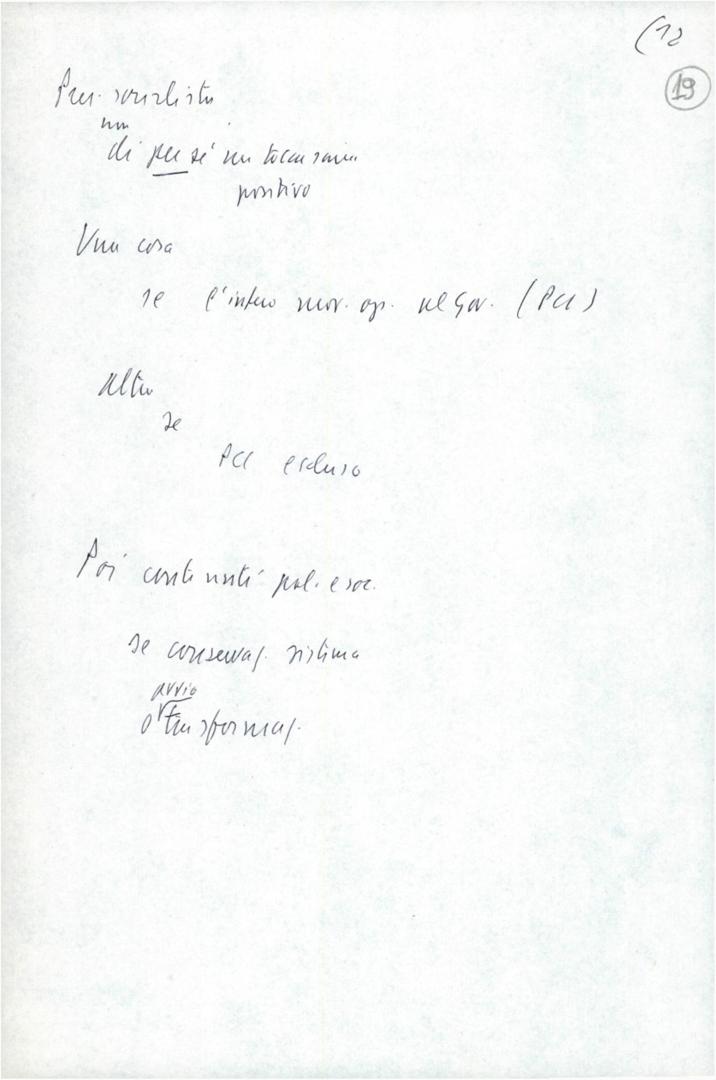 (12
19
Pres. socialista
non
di per sé un toccasana
positivo
Una cosa
se l'intero mov. op. al Gov. (PCI)
Altro
se
PCI escluso
Poi contenuti pol. e soc.
se conservaz. sistema
avvio
o trasformaz.